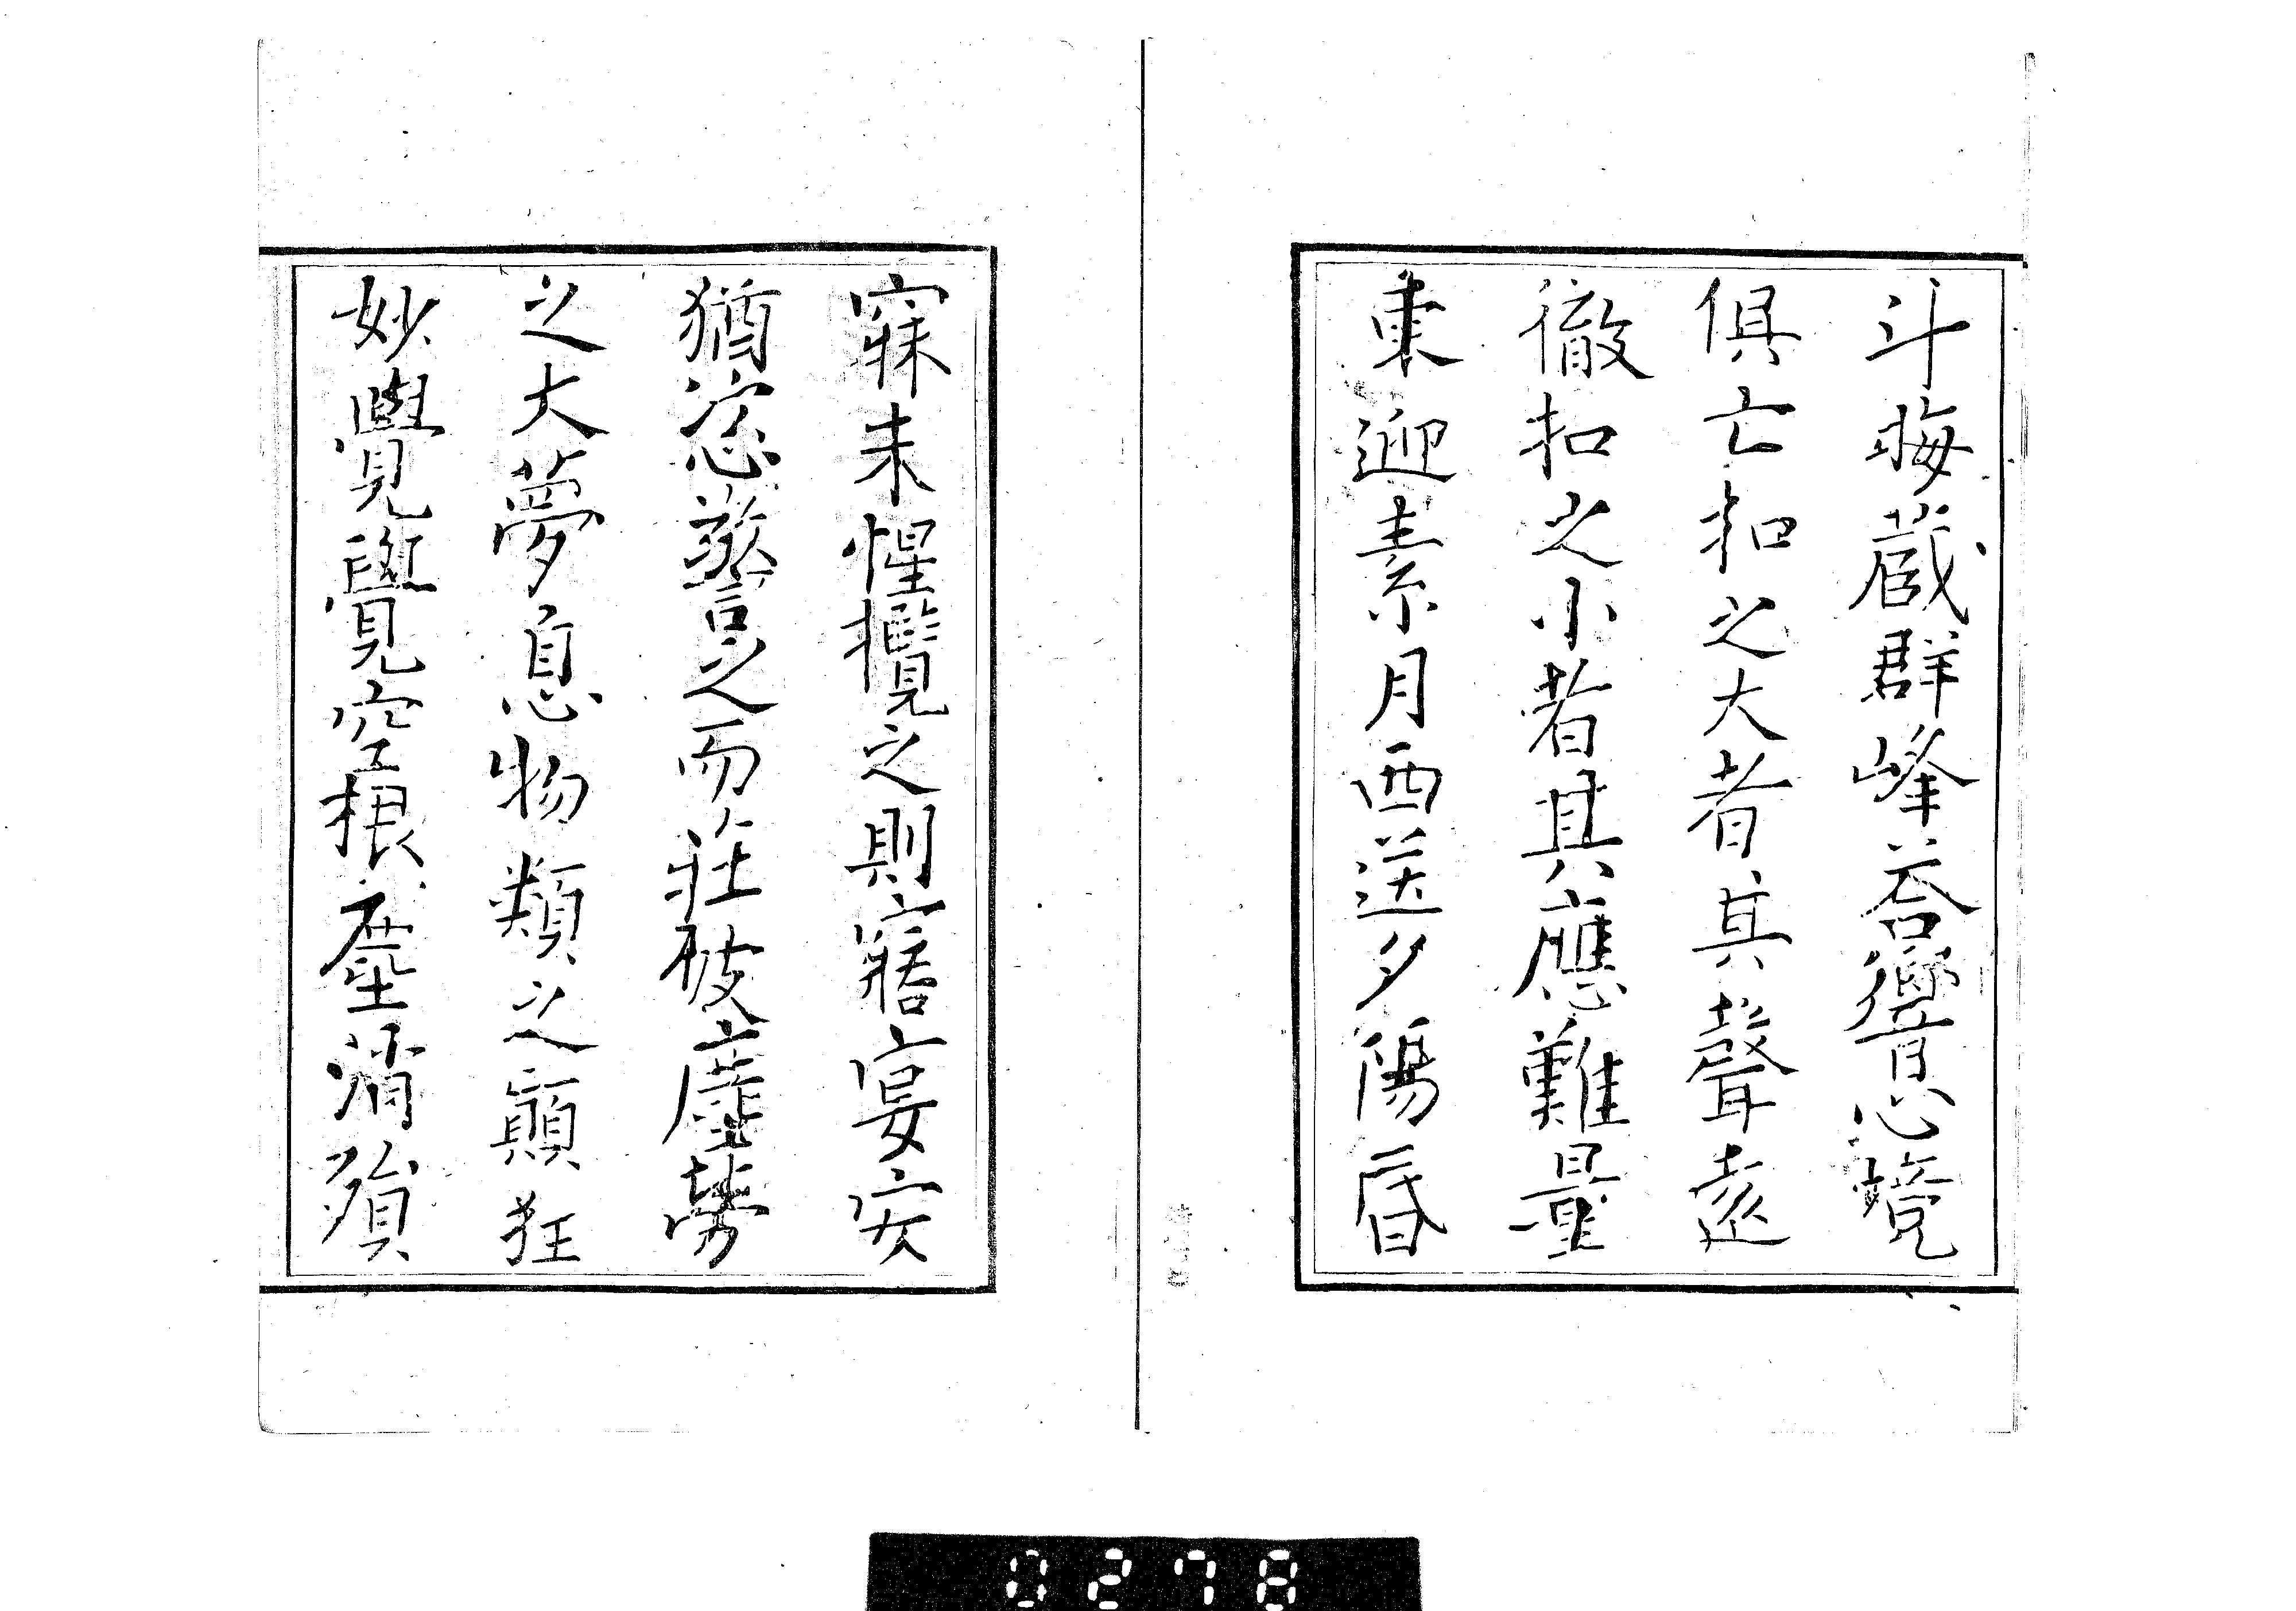 斗晦蔵群峰荅響心境
俱亡扣之大者其聲遠
徹扣之小者其應難量
東迎素月西送夕陽昏
寐未惺攪之則寤宴安
猶恣警之而莊破塵勞
之大夢息物類之顛狂
妙覺覺空根塵消殞
0278